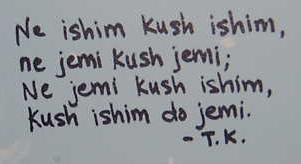 Ne ishim kush ishim,
ne jemi kush jemi;
Ne jemi kush ishim,
kush ishim do jemi.
- T.K.